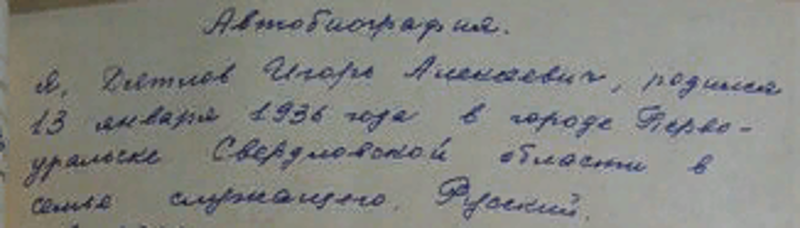 Автобиография.
Я, Дятлов Игорь Алексеевич, родился
13 января 1936 года в городе Перво-
уральске Свердловской области в
семье служащего. Русский.